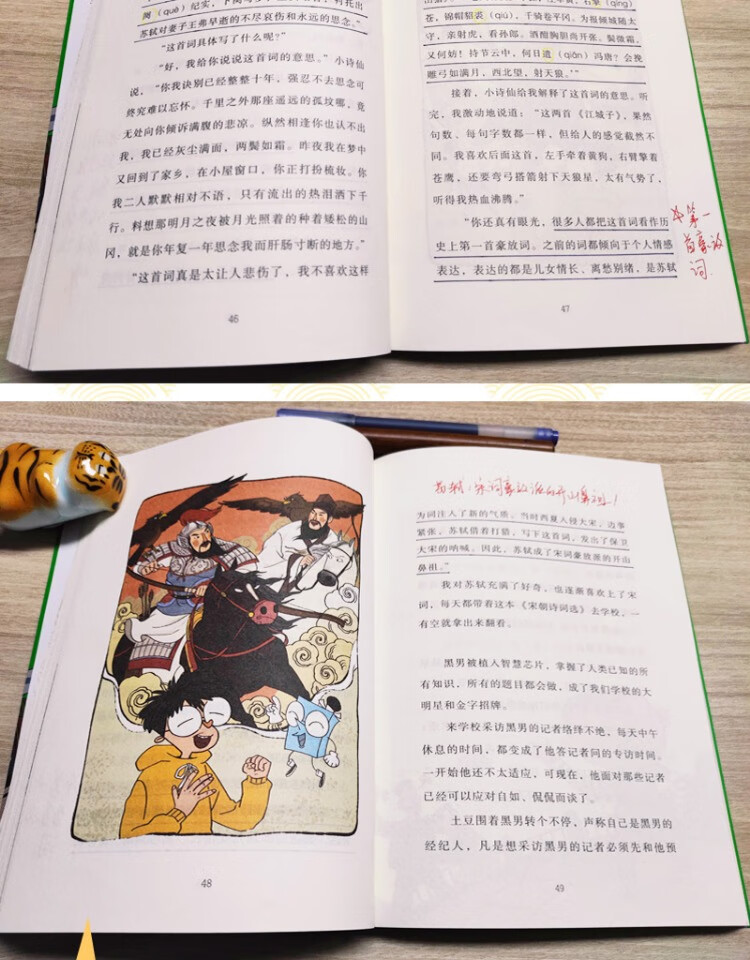 阕（què）纪实，下阕写梦，
苏轼对妻子王弗早逝的不尽哀伤和永远的思念。”
“这首词具体写了什么呢？”
“好，我给你说说这首词的意思。”小诗仙
说，“你我诀别已经整整十年，强忍不去思念可
终究难以忘怀。千里之外那座遥远的孤坟哪，竟
无处向你倾诉满腹的悲凉。纵然相逢你也认不出
我，我已经灰尘满面，两鬓如霜。昨夜我在梦中
又回到了家乡，在小屋窗口，你正打扮梳妆。你
我二人默默相对不语，只有流出的热泪洒下千
行。料想那明月之夜被月光照着的种着矮松的山
冈，就是你年复一年思念我而肝肠寸断的地方。”
“这首词真是太让人悲伤了，我不喜欢这样
46
苍，锦帽貂裘（qiú），千骑卷平冈。为报倾城随太
守，亲射虎，看孙郎。酒酣胸胆尚开张。鬓微霜，
又何妨！持节云中，何日遣（qiǎn）冯唐？会挽
雕弓如满月，西北望，射天狼。’”
接着，小诗仙给我解释了这首词的意思。听
完，我激动地说道：“这两首《江城子》，果然
句数、每句字数都一样，但给人的感觉截然不
同。我喜欢后面这首，左手牵着黄狗，右臂擎着
苍鹰，还要弯弓搭箭射下天狼星，太有气势了，
听得我热血沸腾。”
“你还真有眼光，很多人都把这首词看作历
史上第一首豪放词。之前的词都倾向于个人情感
表达，表达的都是儿女情长、离愁别绪，是苏轼
第一
首豪放
词
47
48
苏轼：宋词豪放派的开山鼻祖！
为词注入了新的气质。当时西夏入侵大宋，边事
紧张，苏轼借着打猎，写下这首词，发出了保卫
大宋的呐喊。因此，苏轼成了宋词豪放派的开山
鼻祖。”
我对苏轼充满了好奇，也逐渐喜欢上了宋
词，每天都带着这本《宋朝诗词选》去学校，一
有空就拿出来翻看。
黑男被植入智慧芯片，掌握了人类已知的所
有知识，所有的题目都会做，成了我们学校的大
明星和金字招牌。
来学校采访黑男的记者络绎不绝，每天中午
休息的时间，都变成了他答记者问的专访时间。
一开始他还不太适应，可现在，他面对那些记者
已经可以应对自如、侃侃而谈了。
土豆围着黑男转个不停，声称自己是黑男的
经纪人，凡是想采访黑男的记者必须先和他预
49